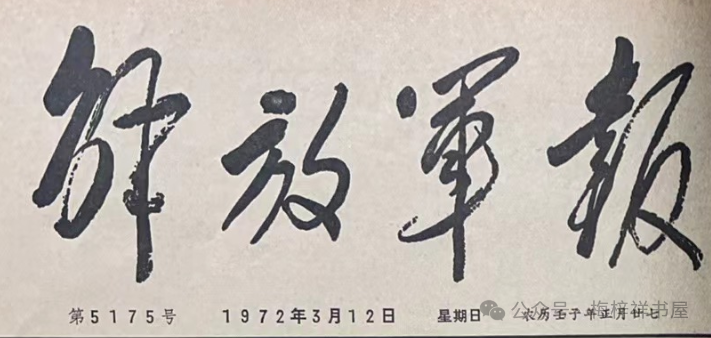 解放軍报
第5175号 1972年3月12日 星期日 农历壬子年正月廿七
公众号 · 梅梓祥书屋